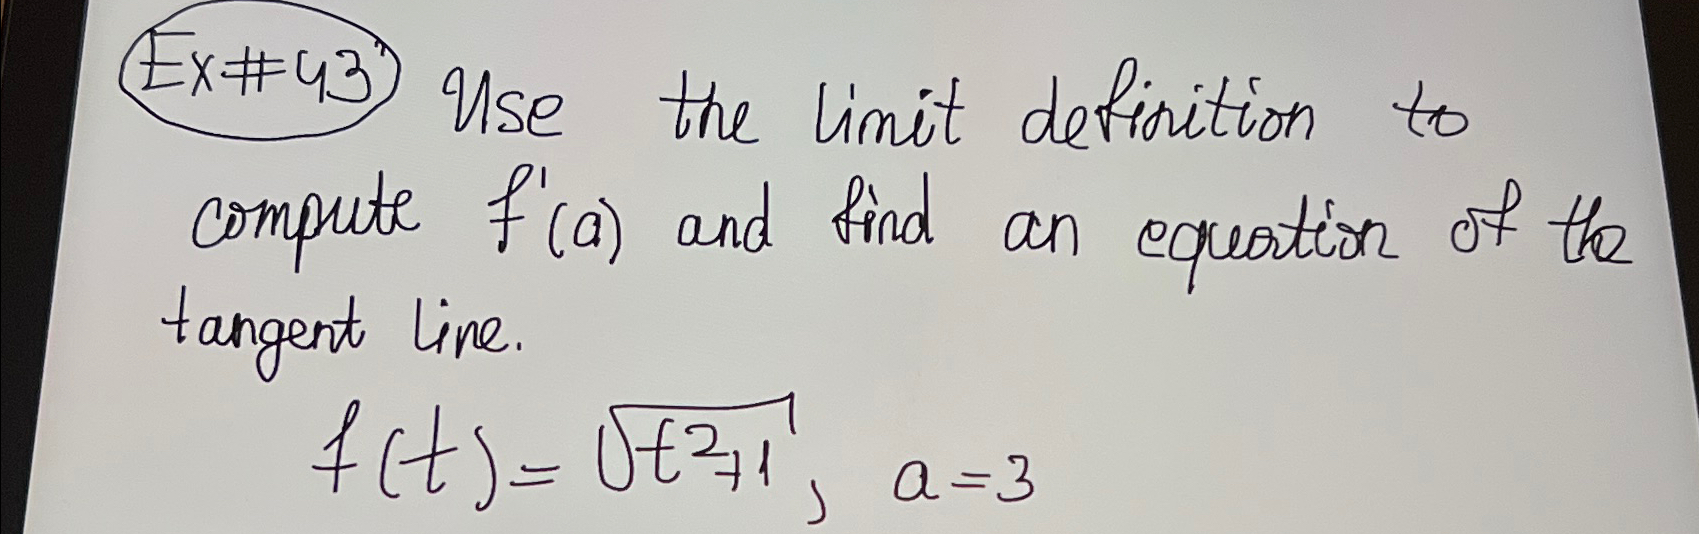 Ex#43 Use the limit definition to
compute f'(a) and find an equation of the
tangent line.
f(t)=√t²+1, a=3